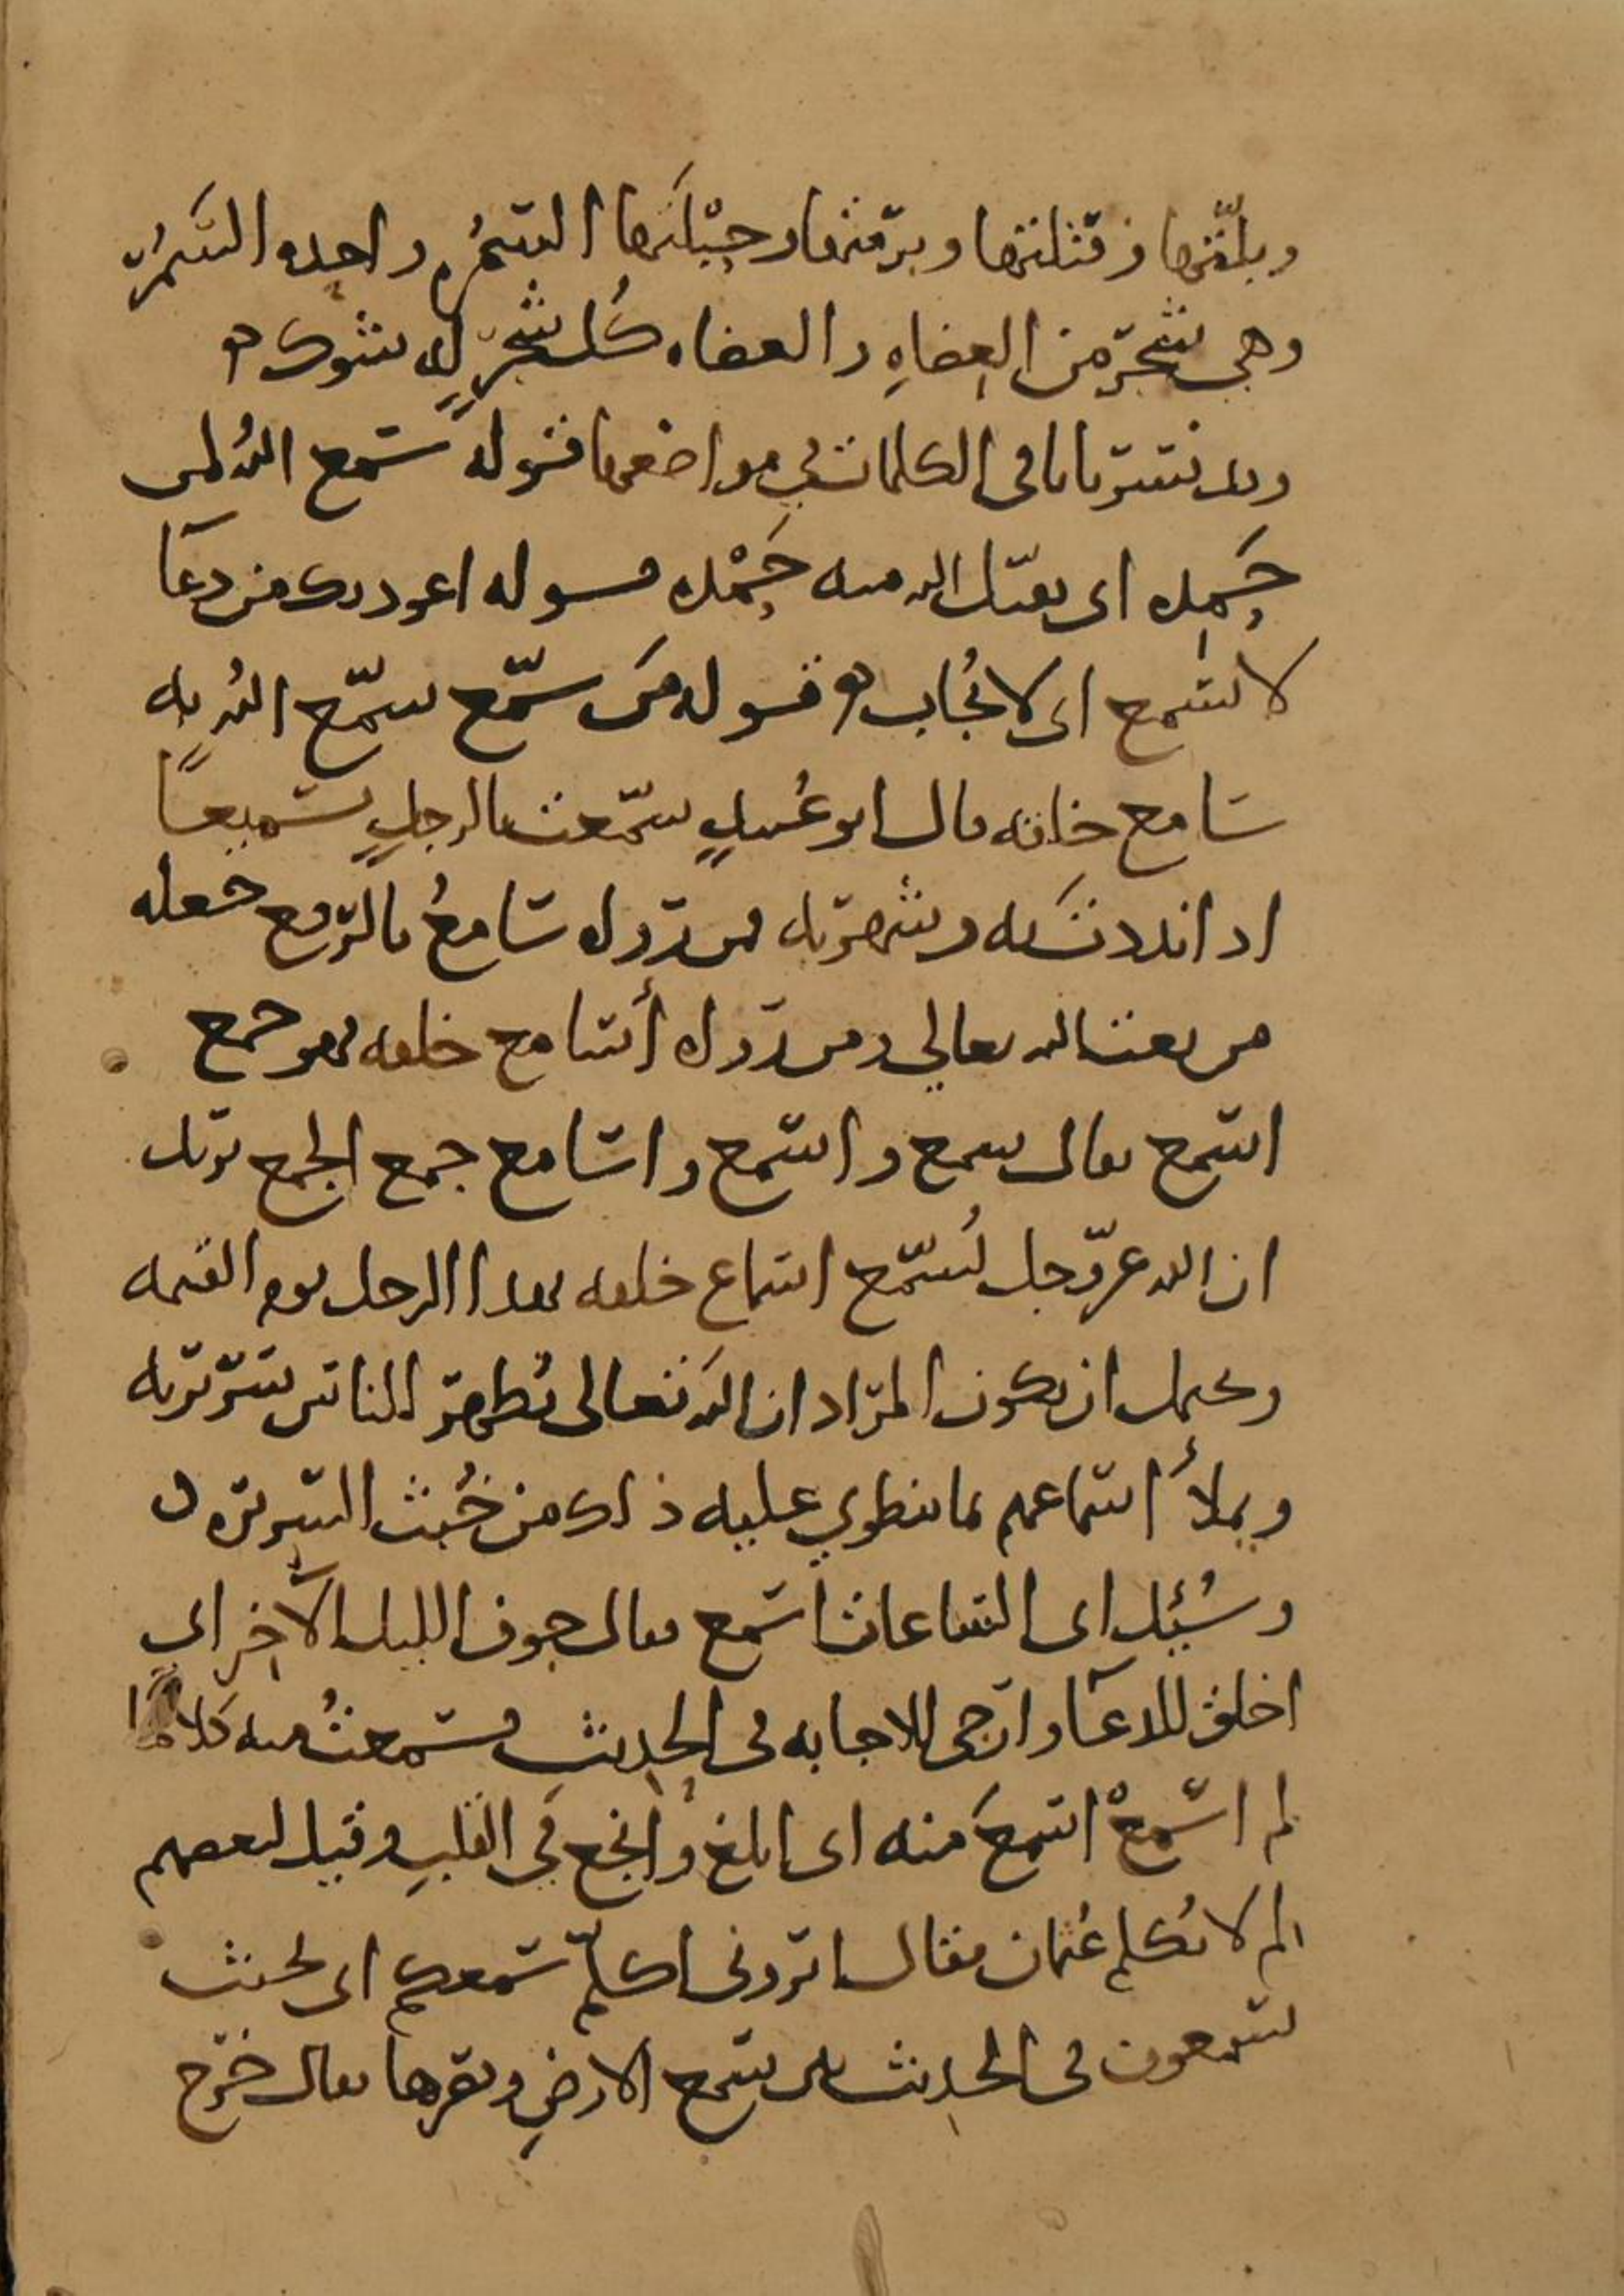 وبلّتها وقتلتها وبرمتها وحبْلَتها السَّمُرة واحدة السَّمُر
وهي شجر من العِضاهِ والعضاه كُل شجرٍ له شوك ۞
وقد فسّرنا باقي الكلمات في مواضعها قوله سَمع اللهُ لمن
حَمِده اى يقبّل الله منه حَمْده قوله اعوذ بك من دعآ
لا يُسْمع اى لا يُجاب ۞ قوله مَن سَمّع سمّع اللهُ به
سَامع خلقه قال ابو عُبيدٍ سمّعت بالرجلِ تسميعًا
اذا نددت به وشهرته فمن رواه سَامعُ بالرفع جعله
من نعت الله تعالي ومن رواه أسَامع خلقه فهو جمع
اسمع يقال سمع واسمع واسَامع جمع الجمع يريد
ان الله عزّوجل يُسمّع اسماع خلقه بهذا الرجل يوم القيمه
ويحتمل ان يكون المراد ان الله تعالى يُظهر للناس سريرته
ويملأ أسماعهم بما ينطوي عليه ذلك من خُبث السريره ں
وسُئِل اى الساعات اسمع قال جوف الليل الآخِر اي
اخلق للدعآ وارجى للاجابه في الحديث فسَمعتُ منه كلامًا
لم اسْمعْ اسمعَ منه اى ابلغ وانجع في القلبِ وقيل لبعضهم
لم لا تكلم عُثمان فقال اترونى اكلمّ سَمعكم اى بحيث
تسمعون في الحديث بين سَمع الارضِ وبصرها يقال خرج